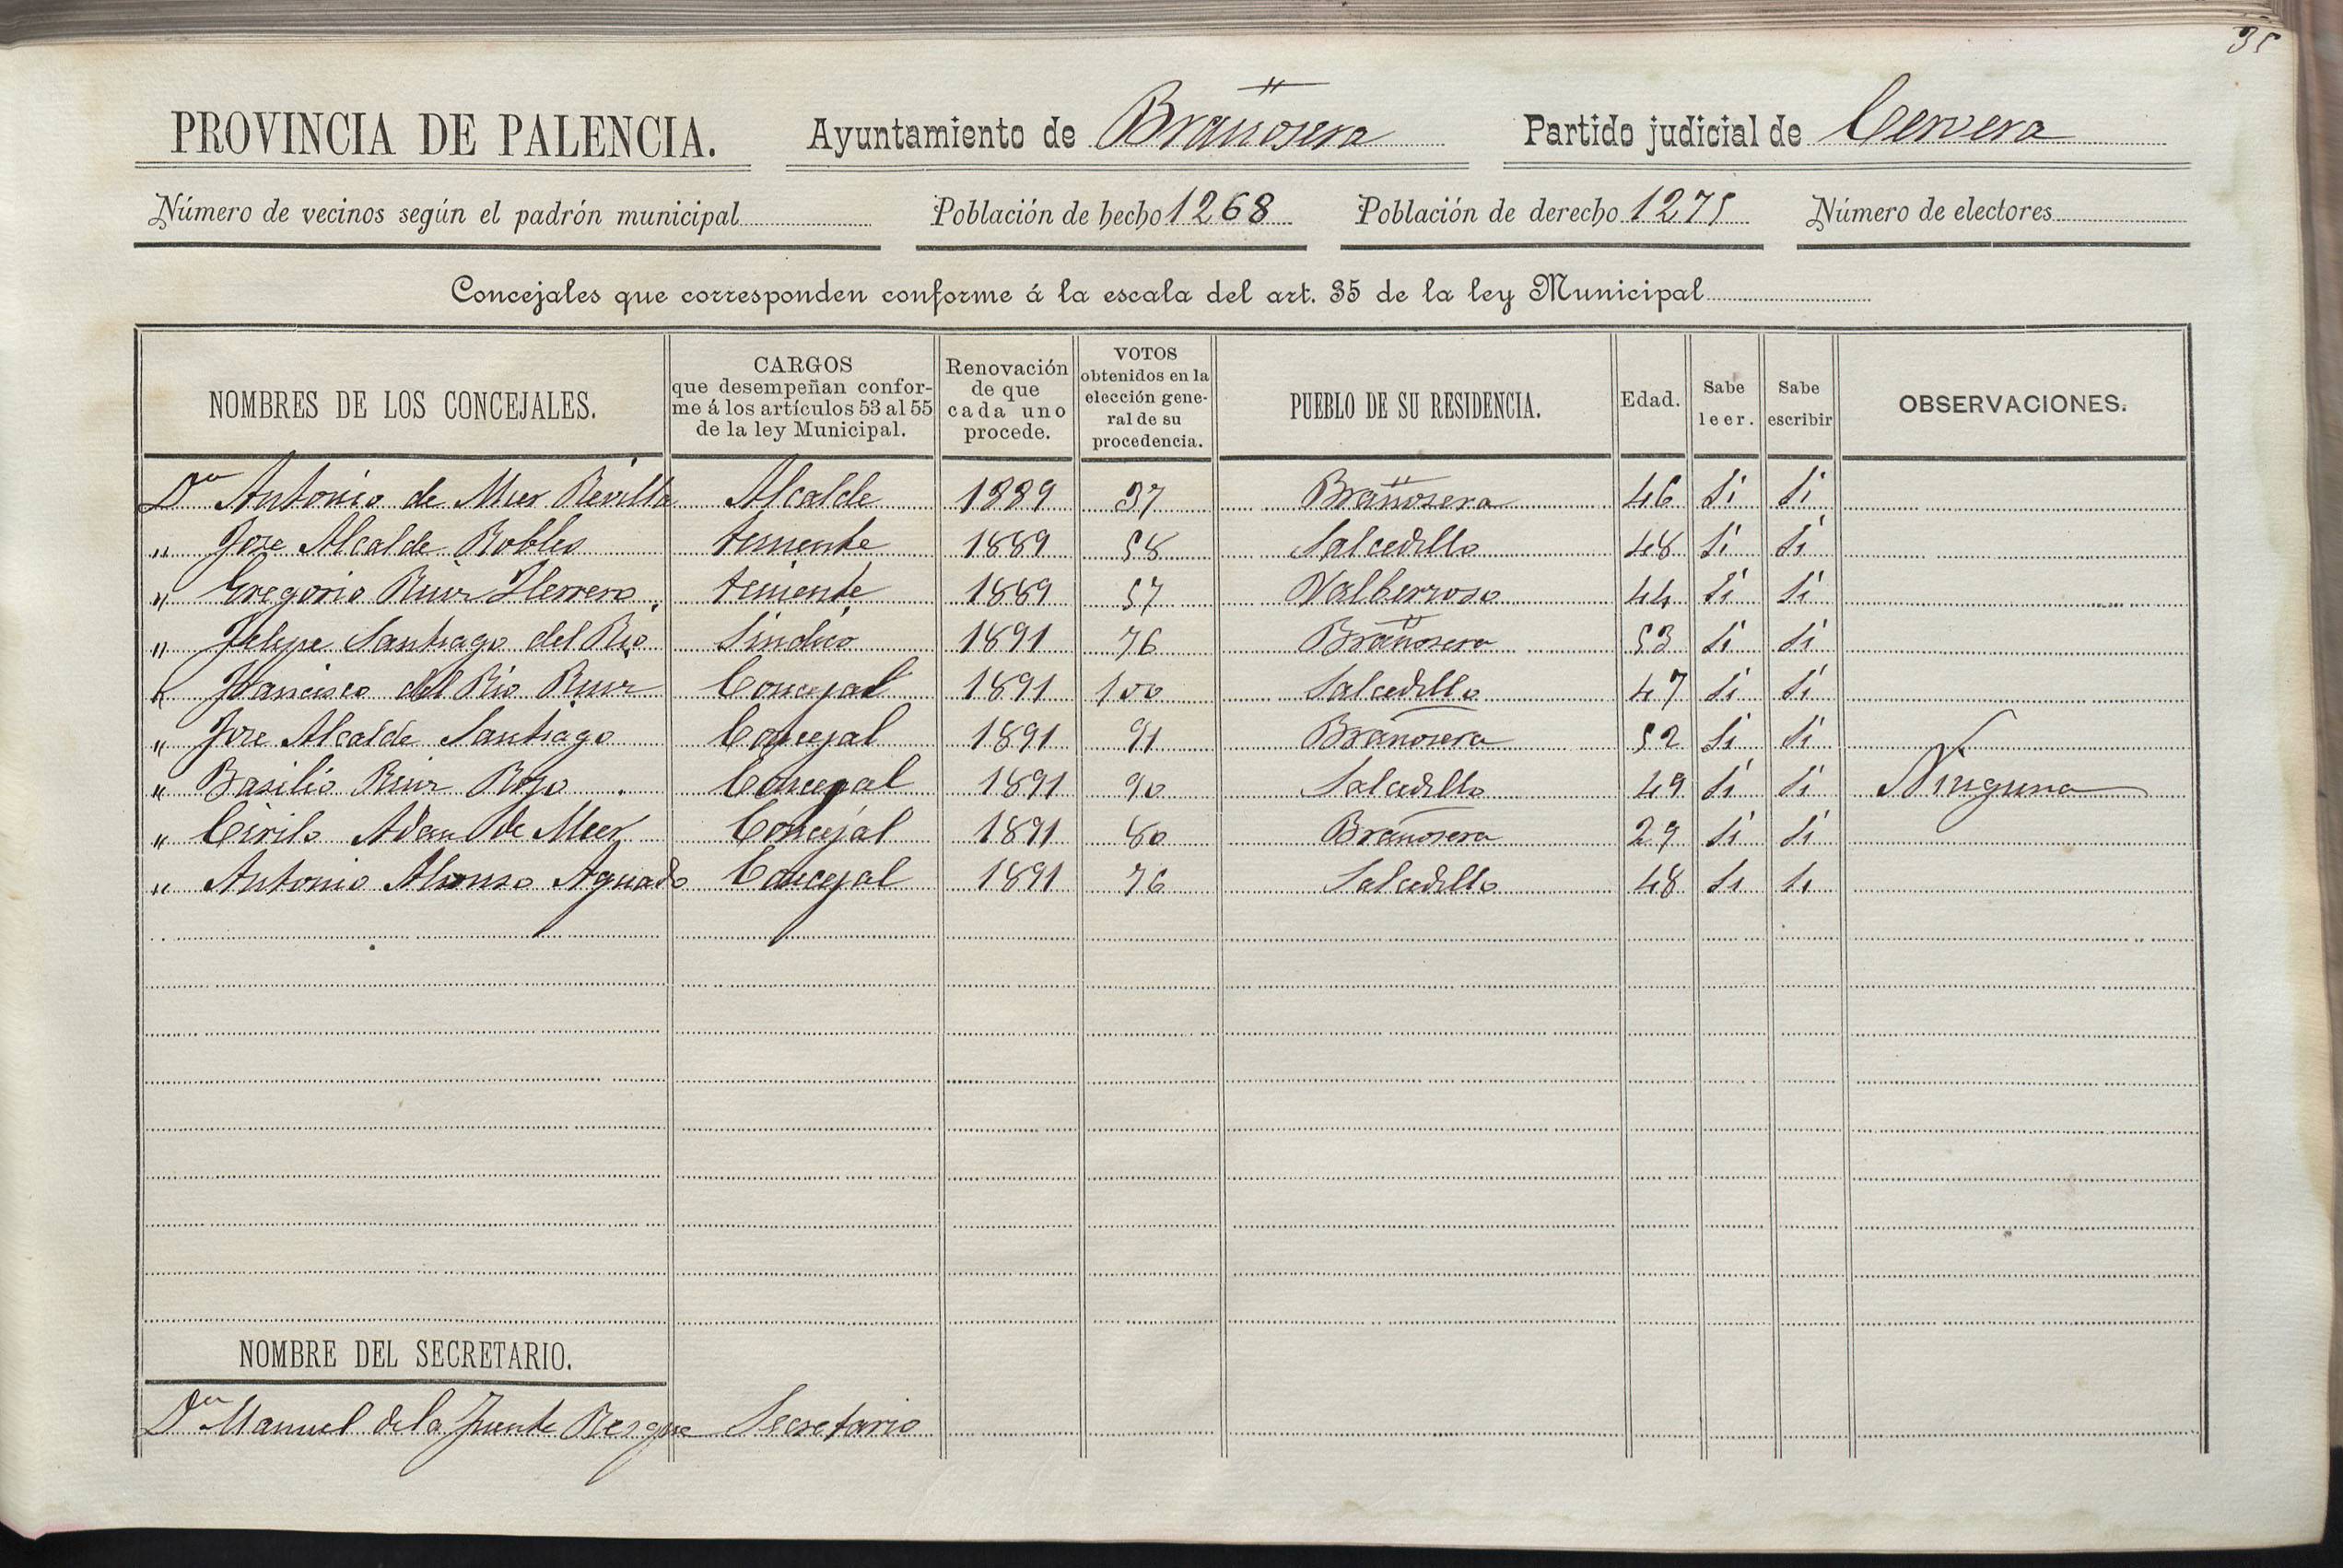 35
PROVINCIA DE PALENCIA. Ayuntamiento de Brañosera Partido judicial de Cervera
Número de vecinos según el padrón municipal Población de hecho 1268 Población de derecho 1275 Número de electores
Concejales que corresponden conforme á la escala del art. 35 de la ley Municipal
NOMBRES DE LOS CONCEJALES. CARGOS que desempeñan conforme á los artículos 53 al 55 de la ley Municipal. Renovación de que cada uno procede. VOTOS obtenidos en la elección general de su procedencia. PUEBLO DE SU RESIDENCIA. Edad. Sabe leer. Sabe escribir OBSERVACIONES.
Dn Antonio de Mier Revilla Alcalde 1889 37 Brañosera 46 Si Si
" Jose Alcalde Robles teniente 1889 58 Salcedillo 48 Si Si
" Gregorio Ruiz Herrero teniente 1889 57 Valberzoso 44 Si Si
" Felipe Santiago del Rio Sindico 1891 76 Brañosera 53 Si Si
" Francisco del Rio Ruiz Concejal 1891 100 Salcedillo 47 Si Si
" Jose Alcalde Santiago Concejal 1891 91 Brañosera 52 Si Si
" Basilio Ruiz Rojo Concejal 1891 90 Salcedillo 49 Si Si Ninguna
" Cirilo Adan de Mier Concejal 1891 80 Brañosera 29 Si Si
" Antonio Alonso Aguado Concejal 1891 76 Salcedillo 48 Si Si
NOMBRE DEL SECRETARIO.
Dn Manuel de la Fuente Secretario